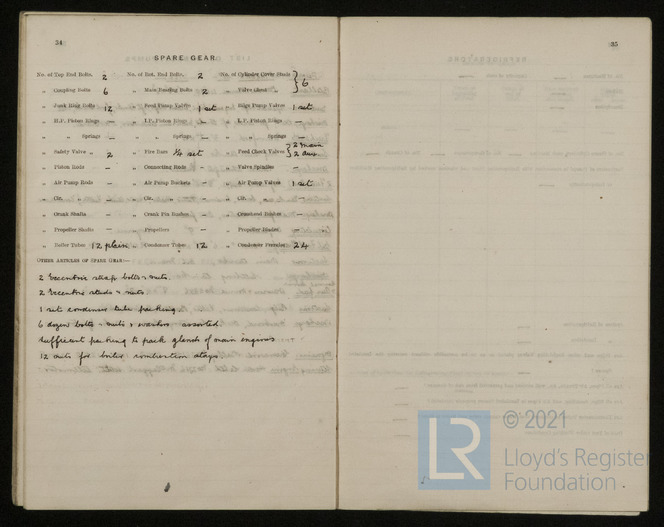 34
SPARE GEAR
No. of Top End Bolts, 2 No. of Bot. End Bolts, 2 No. of Cylinder Cover Studs } 6
„ Coupling Bolts 6 „ Main Bearing Bolts 2 „ Valve Chest „
„ Junk Ring Bolts 12 „ Feed Pump Valves 1 set „ Bilge Pump Valves 1 set
„ H.P. Piston Rings — „ I.P. Piston Rings — „ L.P. Piston Rings —
„ „ Springs — „ „ Springs — „ „ Springs —
„ Safety Valve „ 2 „ Fire Bars ¼ set „ Feed Check Valves } 2 main 2 aux.
„ Piston Rods — „ Connecting Rods — „ Valve Spindles —
„ Air Pump Rods — „ Air Pump Buckets — „ Air Pump Valves 1 set
„ Cir. „ — „ Cir. „ — „ Cir. „ —
„ Crank Shafts — „ Crank Pin Bushes — „ Crosshead Bushes —
„ Propeller Shafts — „ Propellers — „ Propeller Blades —
„ Boiler Tubes 12 plain „ Condenser Tubes 12 „ Condenser Ferrules 24
OTHER ARTICLES OF SPARE GEAR:—
2 Eccentric strap bolts & nuts.
2 Eccentric studs & nuts
1 set condenser tube packing.
6 dozen bolts & nuts & washers assorted.
Sufficient packing to pack glands of main engines
12 nuts for boiler combustion stays.
35
© 2021
LR
Lloyd's Register
Foundation